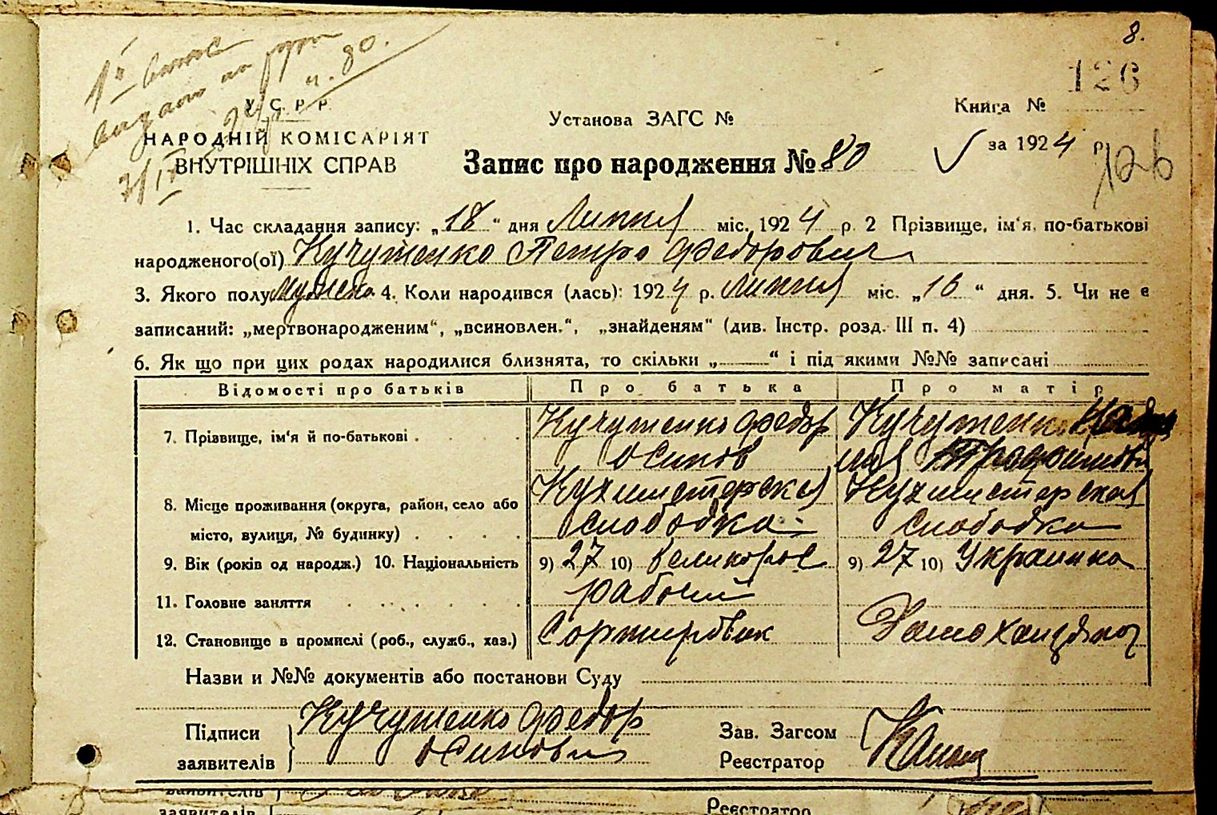 8.
126
1й выпис
выдано на руки
7/IV н. 80.
У. С. Р. Р.
НАРОДНІЙ КОМІСАРІЯТ
ВНУТРІШНІХ СПРАВ
Установа ЗАГС №
Книга №
Запис про народження № 80
за 1924 р.
126
1. Час складання запису: „18“ дня Липня міс. 1924 р. 2 Прізвище, ім'я, по-батькові
народженого(ої) Кучутенко Петро Федорович
3. Якого полу Мужеска 4. Коли народився (лась): 1924 р. Липня міс. „16“ дня. 5. Чи не є
записаний: „мертвонародженим“, „всиновлен.“, „знайденям“ (див. Інстр. розд. III п. 4)
6. Як що при цих родах народилися близнята, то скільки „ “ і під якими №№ записані
Відомості про батьків Про батька Про матір
7. Прізвище, ім'я й по-батькові Кучутенко Федор Кучутенко
Осипов
8. Місце проживання (округа, район, село або Кухмистерская Кухмистерская
місто, вулиця, № будинку) Слободка Слободка
9. Вік (років од народж.) 10. Національність 9) 27 10) великорос 9) 27 10) Украинка
11. Головне заняття рабочий
12. Становище в промислі (роб., служб., хаз.) Сортировщик
Назви и №№ документів або постанови Суду
Підписи Кучутенко Федор Зав. Загсом
заявителів Осипович Реєстратор
заявителів
заявителів Реєстратор